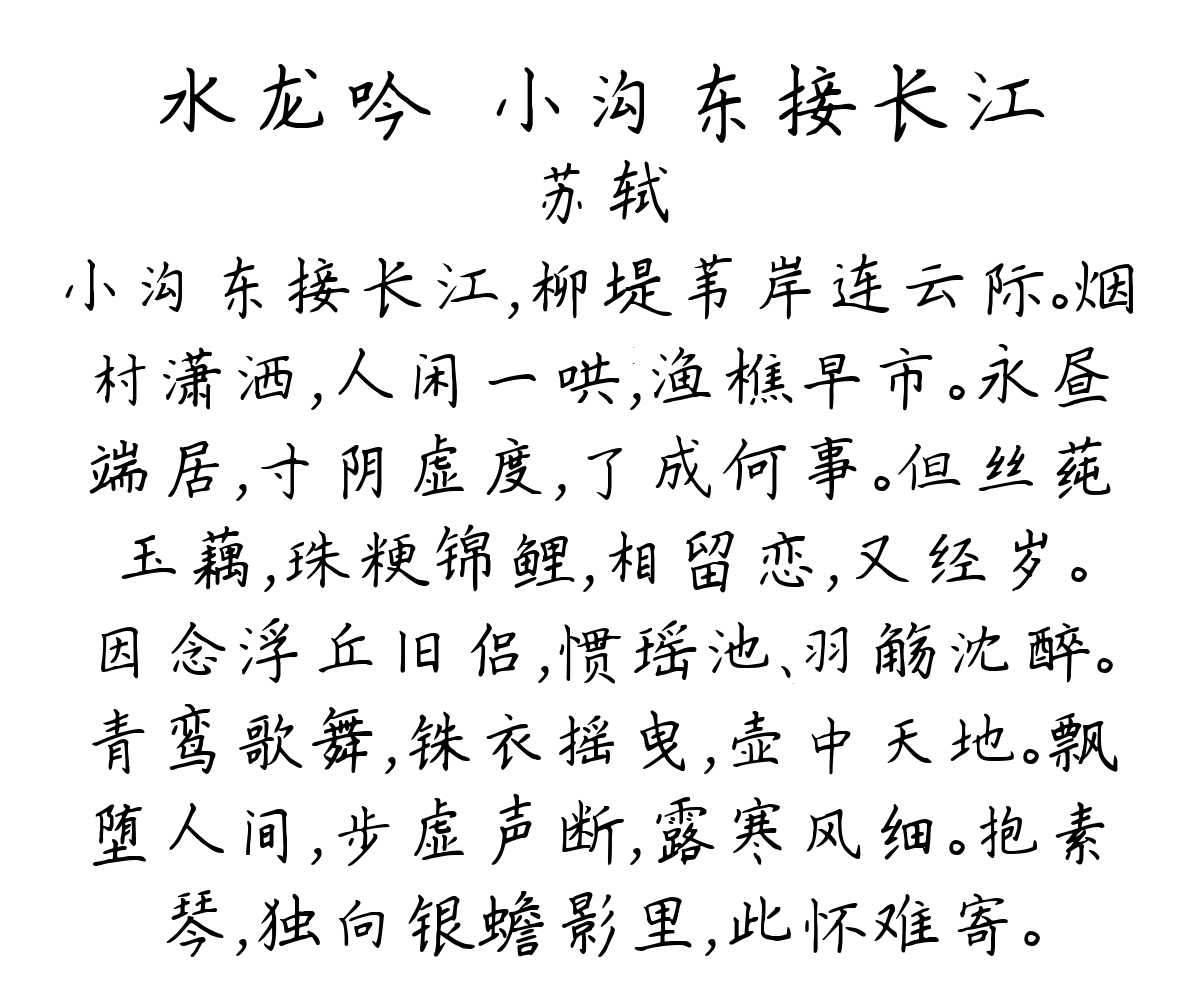 水龙吟 小沟东接长江
苏轼
小沟东接长江,柳堤苇岸连云际。烟
村潇洒,人闲一哄,渔樵早市。永昼
端居,寸阴虚度,了成何事。但丝莼
玉藕,珠粳锦鲤,相留恋,又经岁。
因念浮丘旧侣,惯瑶池、羽觞沈醉。
青鸾歌舞,铢衣摇曳,壶中天地。飘
堕人间,步虚声断,露寒风细。抱素
琴,独向银蟾影里,此怀难寄。